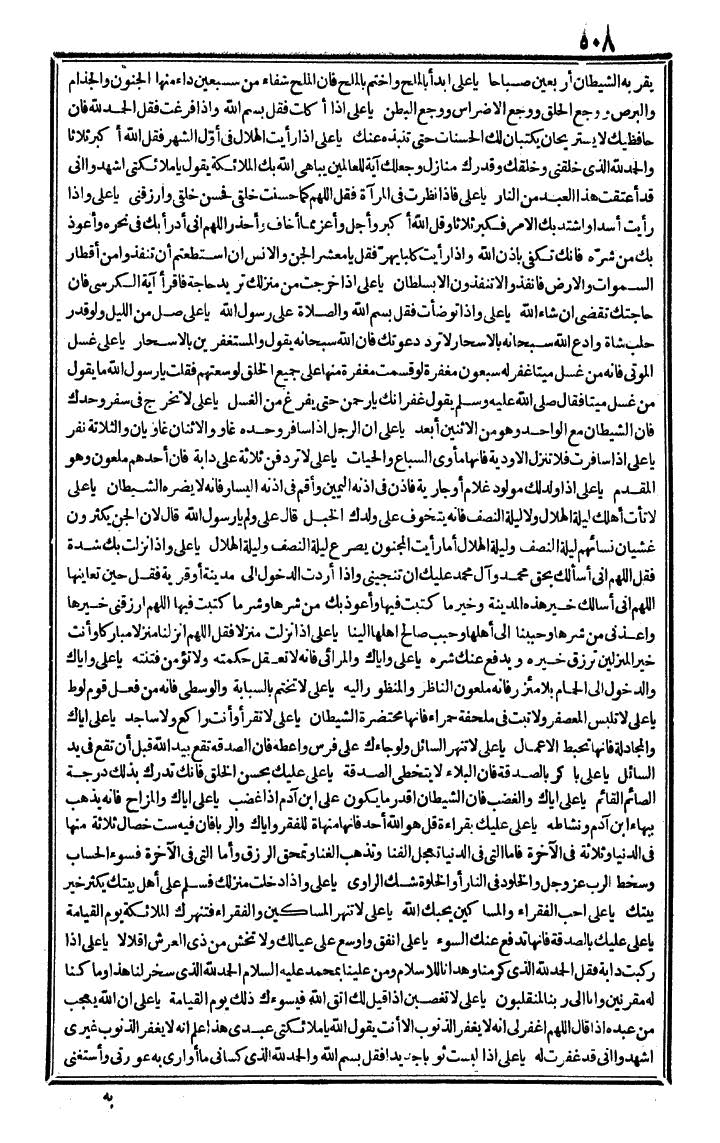 ٥٠٨
يقربه الشيطان أربعين صباحا ياعلى ابدأ بالملح واختم بالملح فان الملح شفاء من سبعين داء منها الجنون والجذام
والبرص ووجع الحلق ووجع الاضراس ووجع البطن ياعلى اذا أكلت فقل بسم الله واذا فرغت فقل الحدلله فان
حافظيك لا يستريحان يكتبان لك الحسنات حتى تنبذه عنك ياعلى اذا رأيت الهلال فى أوّل الشهر فقل الله أكبر ثلاثا
والحدلله الذى خلقنى وخلقك وقدرك منازل وجعلك آية للعالمين يباهى الله بك الملائكة يقول ياملائكتى اشهدوا انى
قد أعتقت هذا العبد من النار ياعلى فاذا نظرت فى المرآة فقل اللهم كما حسنت خلقى فحسن خلقى وارزقنى ياعلى واذا
رأيت أسدا واشتد بك الامر فكبر ثلاثا وقل الله أكبر وأجل وأعز مما أخاف وأحذر اللهم انى أدرأ بك فى نحره وأعوذ
بك من شرّه فانك تكفى باذن الله واذا رأيت كلبا يهرّ فقل يامعشر الجن والانس ان استطعتم أن تنفذوا من أقطار
السموات والارض فانفذوا لا تنفذون الا بسلطان ياعلى اذا خرجت من منزلك تريد حاجة فاقرأ آية الكرسى فان
حاجتك تقضى ان شاء الله ياعلى واذا توضأت فقل بسم الله والصلاة على رسول الله ياعلى صل من الليل ولو قدر
حلب شاة وادع الله سبحانه بالاسحار لا ترد دعوتك فان الله سبحانه يقول والمستغفرين بالاسحار ياعلى غسل
الموتى فانه من غسل ميتا غفر له سبعون مغفرة لو قسمت مغفرة منها على جميع الخلق لوسعتهم فقلت يارسول الله ما يقول
من غسل ميتا فقال صلى الله عليه وسلم يقول غفرانك يارحمن حتى يفرغ من الغسل ياعلى لا تخرج فى سفر وحدك
فان الشيطان مع الواحد وهو من الاثنين أبعد ياعلى ان الرجل اذا سافر وحده غاو والاثنان غاويان والثلاثة نفر
ياعلى اذا سافرت فلا تنزل الاودية فانها مأوى السباع والحيات ياعلى لا تردفن ثلاثة على دابة فان أحدهم ملعون وهو
المقدم ياعلى اذا ولد لك مولود غلام أو جارية فاذن فى اذنه اليمين وأقم فى اذنه اليسار فانه لا يضره الشيطان ياعلى
لا تأت أهلك ليلة الهلال ولا ليلة النصف فانه يتخوف على ولدك الخبل قال على ولم يارسول الله قال لان الجن يكثرون
غشيان نسائهم ليلة النصف وليلة الهلال أما رأيت المجنون يصرع ليلة النصف وليلة الهلال ياعلى واذا نزلت بك شدة
فقل اللهم انى أسألك بحق محمد وآل محمد عليك ان تنجينى واذا أردت الدخول الى مدينة أو قرية فقل حين تعاينها
اللهم انى اسالك خير هذه المدينة وخير ما كتبت فيها وأعوذ بك من شرها وشر ما كتبت فيها اللهم ارزقنى خيرها
واعذنى من شرها وحببنا الى أهلها وحبب صالح اهلها الينا ياعلى اذا نزلت منزلا فقل اللهم انزلنا منزلا مباركا وأنت
خير المنزلين ترزق خيره ويدفع عنك شره ياعلى واياك والمرائى فانه لا تعقل حكمته ولا تؤمن فتنته ياعلى واياك
والدخول الى الحمام بلا مئزر فانه ملعون الناظر والمنظور اليه ياعلى لا تختم بالسبابة والوسطى فانه من فعل قوم لوط
ياعلى لا تلبس المعصفر ولا تبت فى ملحفة حمراء فانها محتضرة الشيطان ياعلى لا تقرأ وأنت راكع ولا ساجد ياعلى اياك
والمجادلة فانها تحبط الاعمال ياعلى لا تنهر السائل ولو جاءك على فرس واعطه فان الصدقة تقع بيد الله قبل أن تقع فى يد
السائل ياعلى باكر بالصدقة فان البلاء لا يتخطى الصدقة ياعلى عليك بحسن الخلق فانك تدرك بذلك درجة
الصائم القائم ياعلى اياك والغضب فان الشيطان اقدر ما يكون على ابن آدم اذا غضب ياعلى اياك والمزاح فانه يذهب
ببهاء ابن آدم ونشاطه ياعلى عليك بقراءة قل هو الله أحد فانها منهاة للفقر واياك والربا فان فيه ست خصال ثلاثة منها
فى الدنيا وثلاثة فى الآخرة فاما التى فى الدنيا تعجل الفنا وتذهب الغنا وتمحق الرزق وأما التى فى الآخرة فسوء الحساب
وسخط الرب عز وجل والخلود فى النار أو الخلوة شك الراوى ياعلى واذا دخلت منزلك فسلم على أهل بيتك يكثر خير
بيتك ياعلى احب الفقراء والمساكين يحبك الله ياعلى لا تنهر المساكين والفقراء فتنهرك الملائكة يوم القيامة
ياعلى عليك بالصدقة فانها تدفع عنك السوء ياعلى انفق واوسع على عيالك ولا تخش من ذى العرش اقلالا ياعلى اذا
ركبت دابة فقل الحدلله الذى كرمنا وهدانا للاسلام ومن علينا بمحمد عليه السلام الحدلله الذى سخر لنا هذا وما كنا
له مقرنين وانا الى ربنا لمنقلبون ياعلى لا تغضبن اذا قيل لك اتق الله فيسوءك ذلك يوم القيامة ياعلى ان الله يعجب
من عبده اذا قال اللهم اغفر لى انه لا يغفر الذنوب الا أنت يقول الله ياملائكتى عبدى هذا علم انه لا يغفر الذنوب غيرى
اشهدوا انى قد غفرت له ياعلى اذا لبست ثوبا جديدا فقل بسم الله والحدلله الذى كسانى ما أوارى به عورتى وأستغنى
به